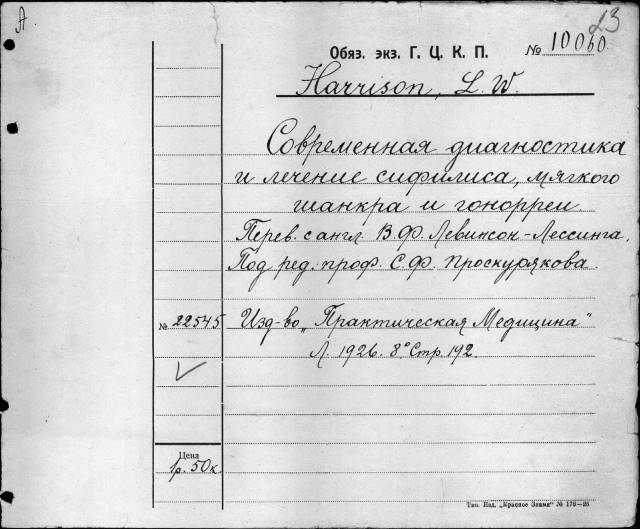 A
23
Обяз. экз. Г. Ц. К. П. № 10060
Harrison, L. W.
Современная диагностика
и лечение сифилиса, мягкого
шанкра и гонорреи.
Перев. с англ. В.Ф. Левинсон-Лессинга.
Под ред. проф. С.Ф. Проскурякова.
№ 22545 Изд-во „Практическая Медицина"
Л. 1926. 8° Стр. 192.
Цена
1р. 50к
Тип. Изд. „Красное Знамя" № 178—26